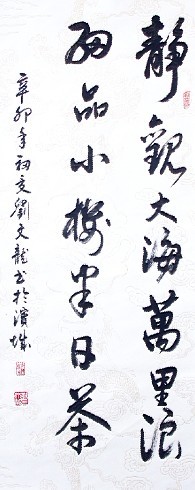 靜觀大海萬里浪
細品小樓半日茶
辛卯年初夏劉文龍書於濱城